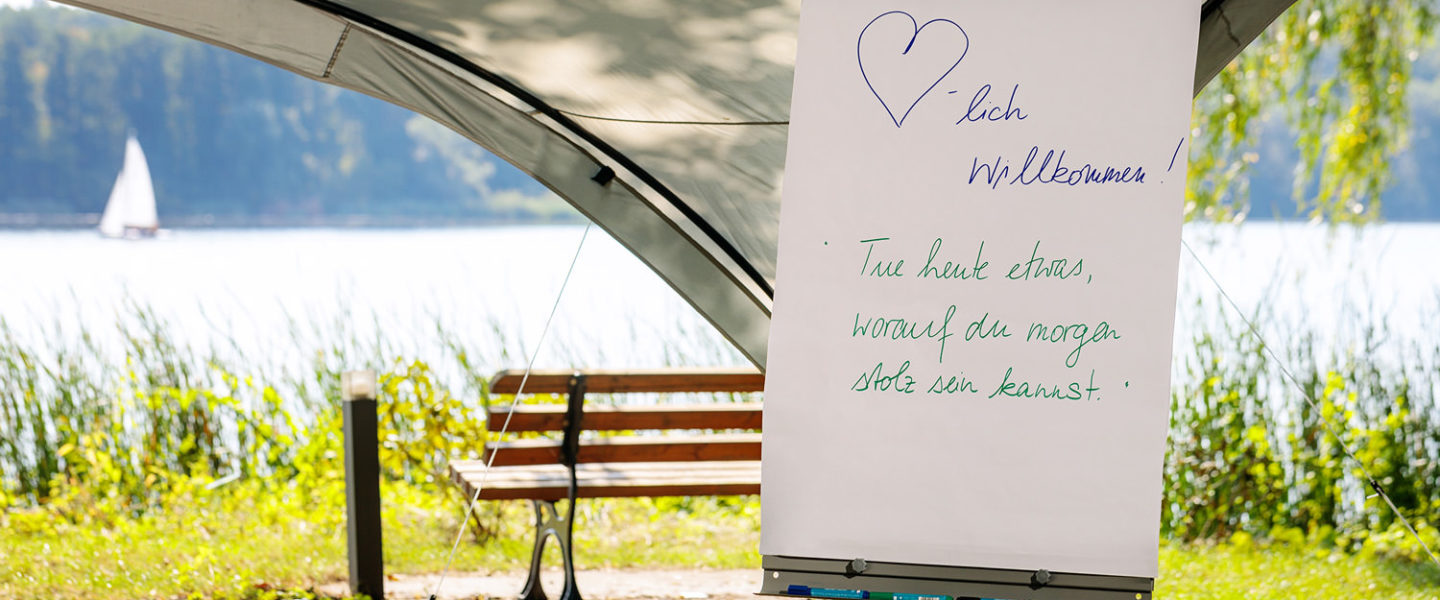 ♡-lich
Willkommen!
Tue heute etwas,
worauf du morgen
stolz sein kannst.